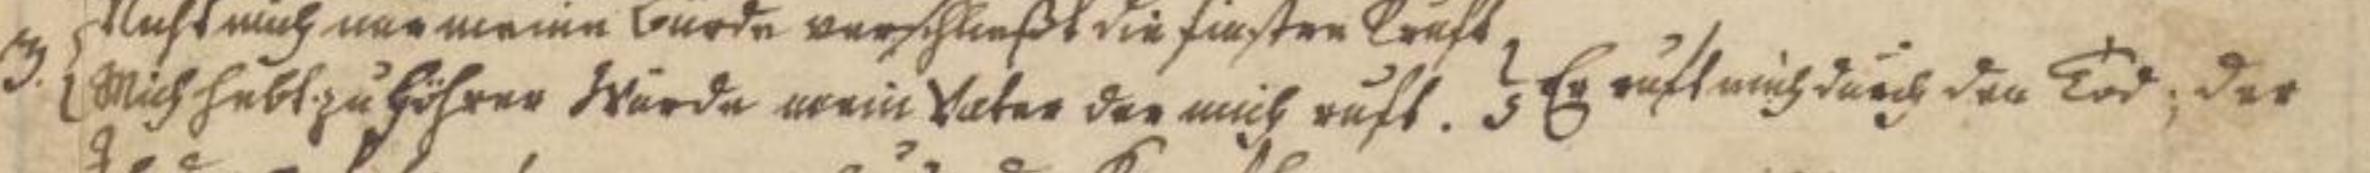 Nicht mich nur meine Bürde verschließt die finstre Cruft,
3. Mich hebt zu höhrer Würde mein Vater der mich ruft. Er ruft mich durch den Tod; der